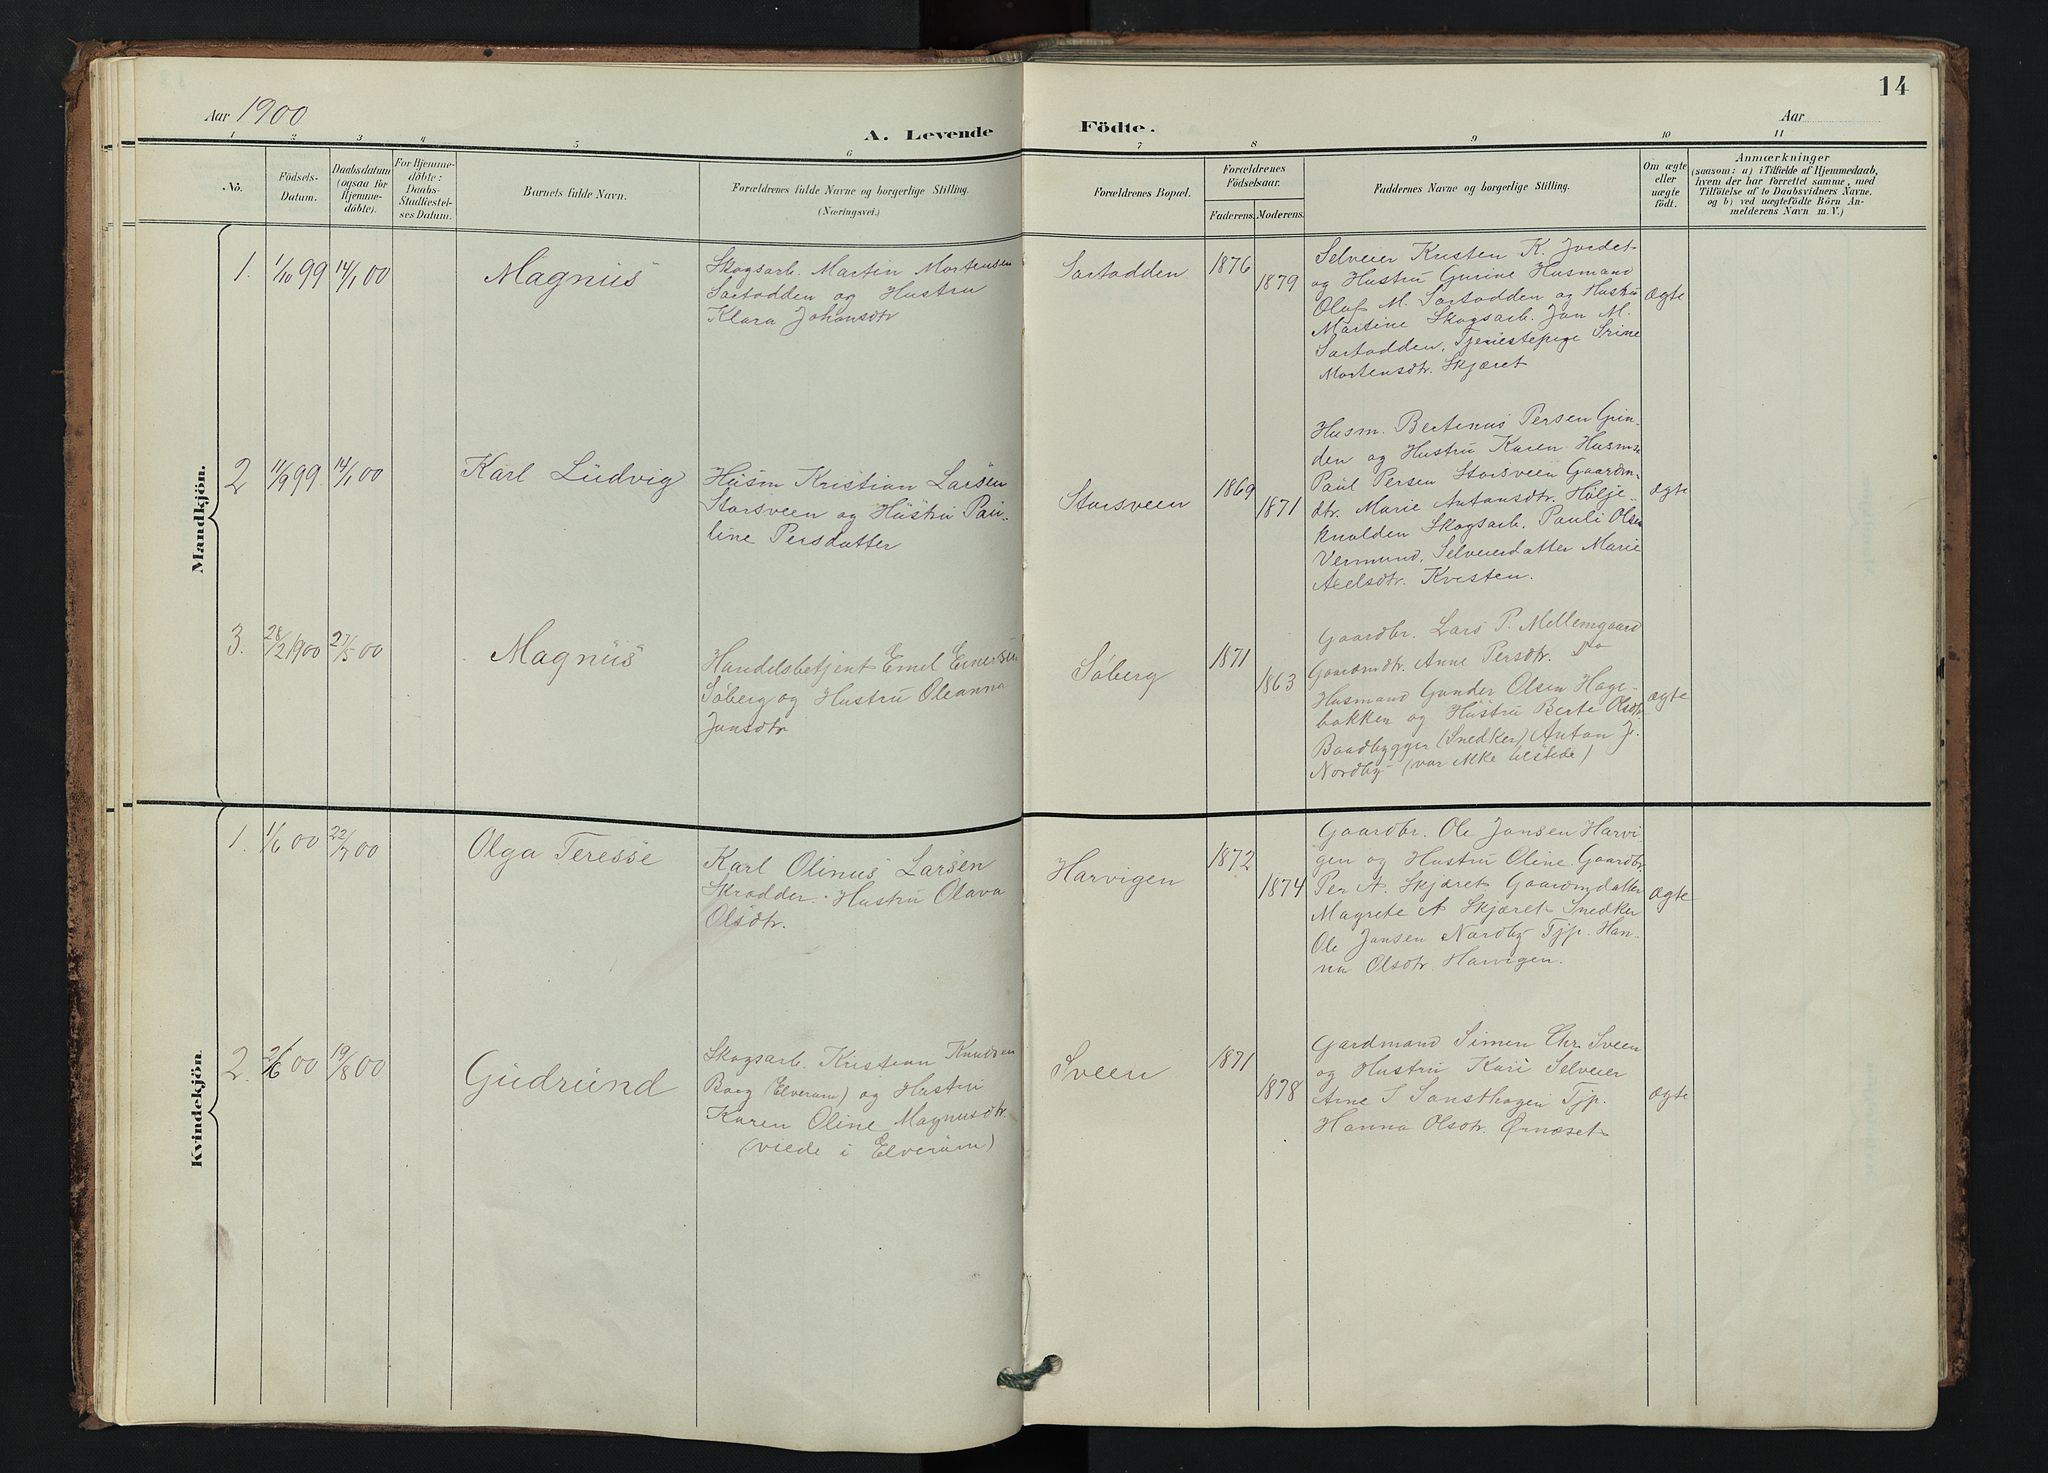 14
Aar 1900
A. Levende Födte.
Aar
1 2 3 4 5 6 7 8 9 10 11
No.
Födsels-
Datum.
Daabsdatum
(ogsaa for
Hjemme-
döbte).
For Hjemme-
döbte:
Daabs-
Stadfæstel-
ses Datum.
Barnets fulde Navn.
Forældrenes fulde Navne og borgerlige Stilling.
(Næringsvei.)
Forældrenes Bopæl.
Forældrenes
Födselsaar.
Faderens. Moderens.
Faddernes Navne og borgerlige Stilling.
Om ægte
eller
uægte
födt.
Anmærkninger
(saasom: a) i Tilfælde af Hjemmedaab,
hvem der har forrettet samme, med
Tilföielse af to Daabsvidners Navne,
og b) ved uægtefödte Börn An-
melderens Navn m. V.)
Mandkjön.
1. 1/10 99 14/1 00
Magnus
Skogsarb. Martin Mortensen
Sortodden og Hustru
Klara Johansdtr
Sortodden
1876
1879
Selveier Kristen K. Jordet
og Hustru Gurine Husmand
Olaf M. Sortodden og Hustru
Martine Skogsarb. Jon M.
Sortodden, Tjenestepige Trine
Mortensdtr. Skjæret
ægte
2 11/9 99 14/1 00
Karl Ludvig
Husm Kristian Larsen
Storsveen og Hustru Pau-
line Persdatter
Storsveen
1869
1871
Husm. Bertinus Persen Grin-
den og Hustru Karen Husms
Paul Persen Storsveen Gaardm-
dtr. Marie Antonsdtr. Hølje-
knulden Skogsarb. Pauli Olsen
Vermund, Selveierdatter Marie
Axelsdtr. Kvisten.
ægte
3. 28/2 1900 27/5 00
Magnus
Handelsbetjent Emil Einersen
Søberg og Hustru Oleanna
Jonsdtr
Søberg
1871
1863
Gaardbr. Lars P. Mellemgaard
Gaardmdtr. Anne Persdtr. Do
Husmand Gunder Olsen Hage-
bakken og Hustru Berte Olsdtr.
Baadbygger (Snedker) Anton J.
Nordby (var ikke tilstede)
ægte
Kvindekjön.
1. 1/6 00 22/7 00
Olga Teresse
Karl Olinus Larsen
Skrædder. Hustru Olava
Olsdtr.
Harvigen
1872
1874
Gaardbr. Ole Jonsen Harvi
gen og Hustru Oline Gaardbr.
Per A. Skjæret Gaardmdatter
Magrete A Skjæret Snedker
Ole Jonsen Nordby Tjp. Han-
na Olsdtr. Harvigen.
ægte
2. 2/6 00 19/8 00
Gudrund
Skogsarb. Kristian Knudsen
Borg (Elverum) og Hustru
Karen Oline Magnusdtr.
(viede i Elverum)
Sveen
1871
1878
Gardmand Simen Chr. Sveen
og Hustru Kari Selveier
Arne S Sansthagen Tjp.
Hanna Olsdtr. Ørnæset
ægte